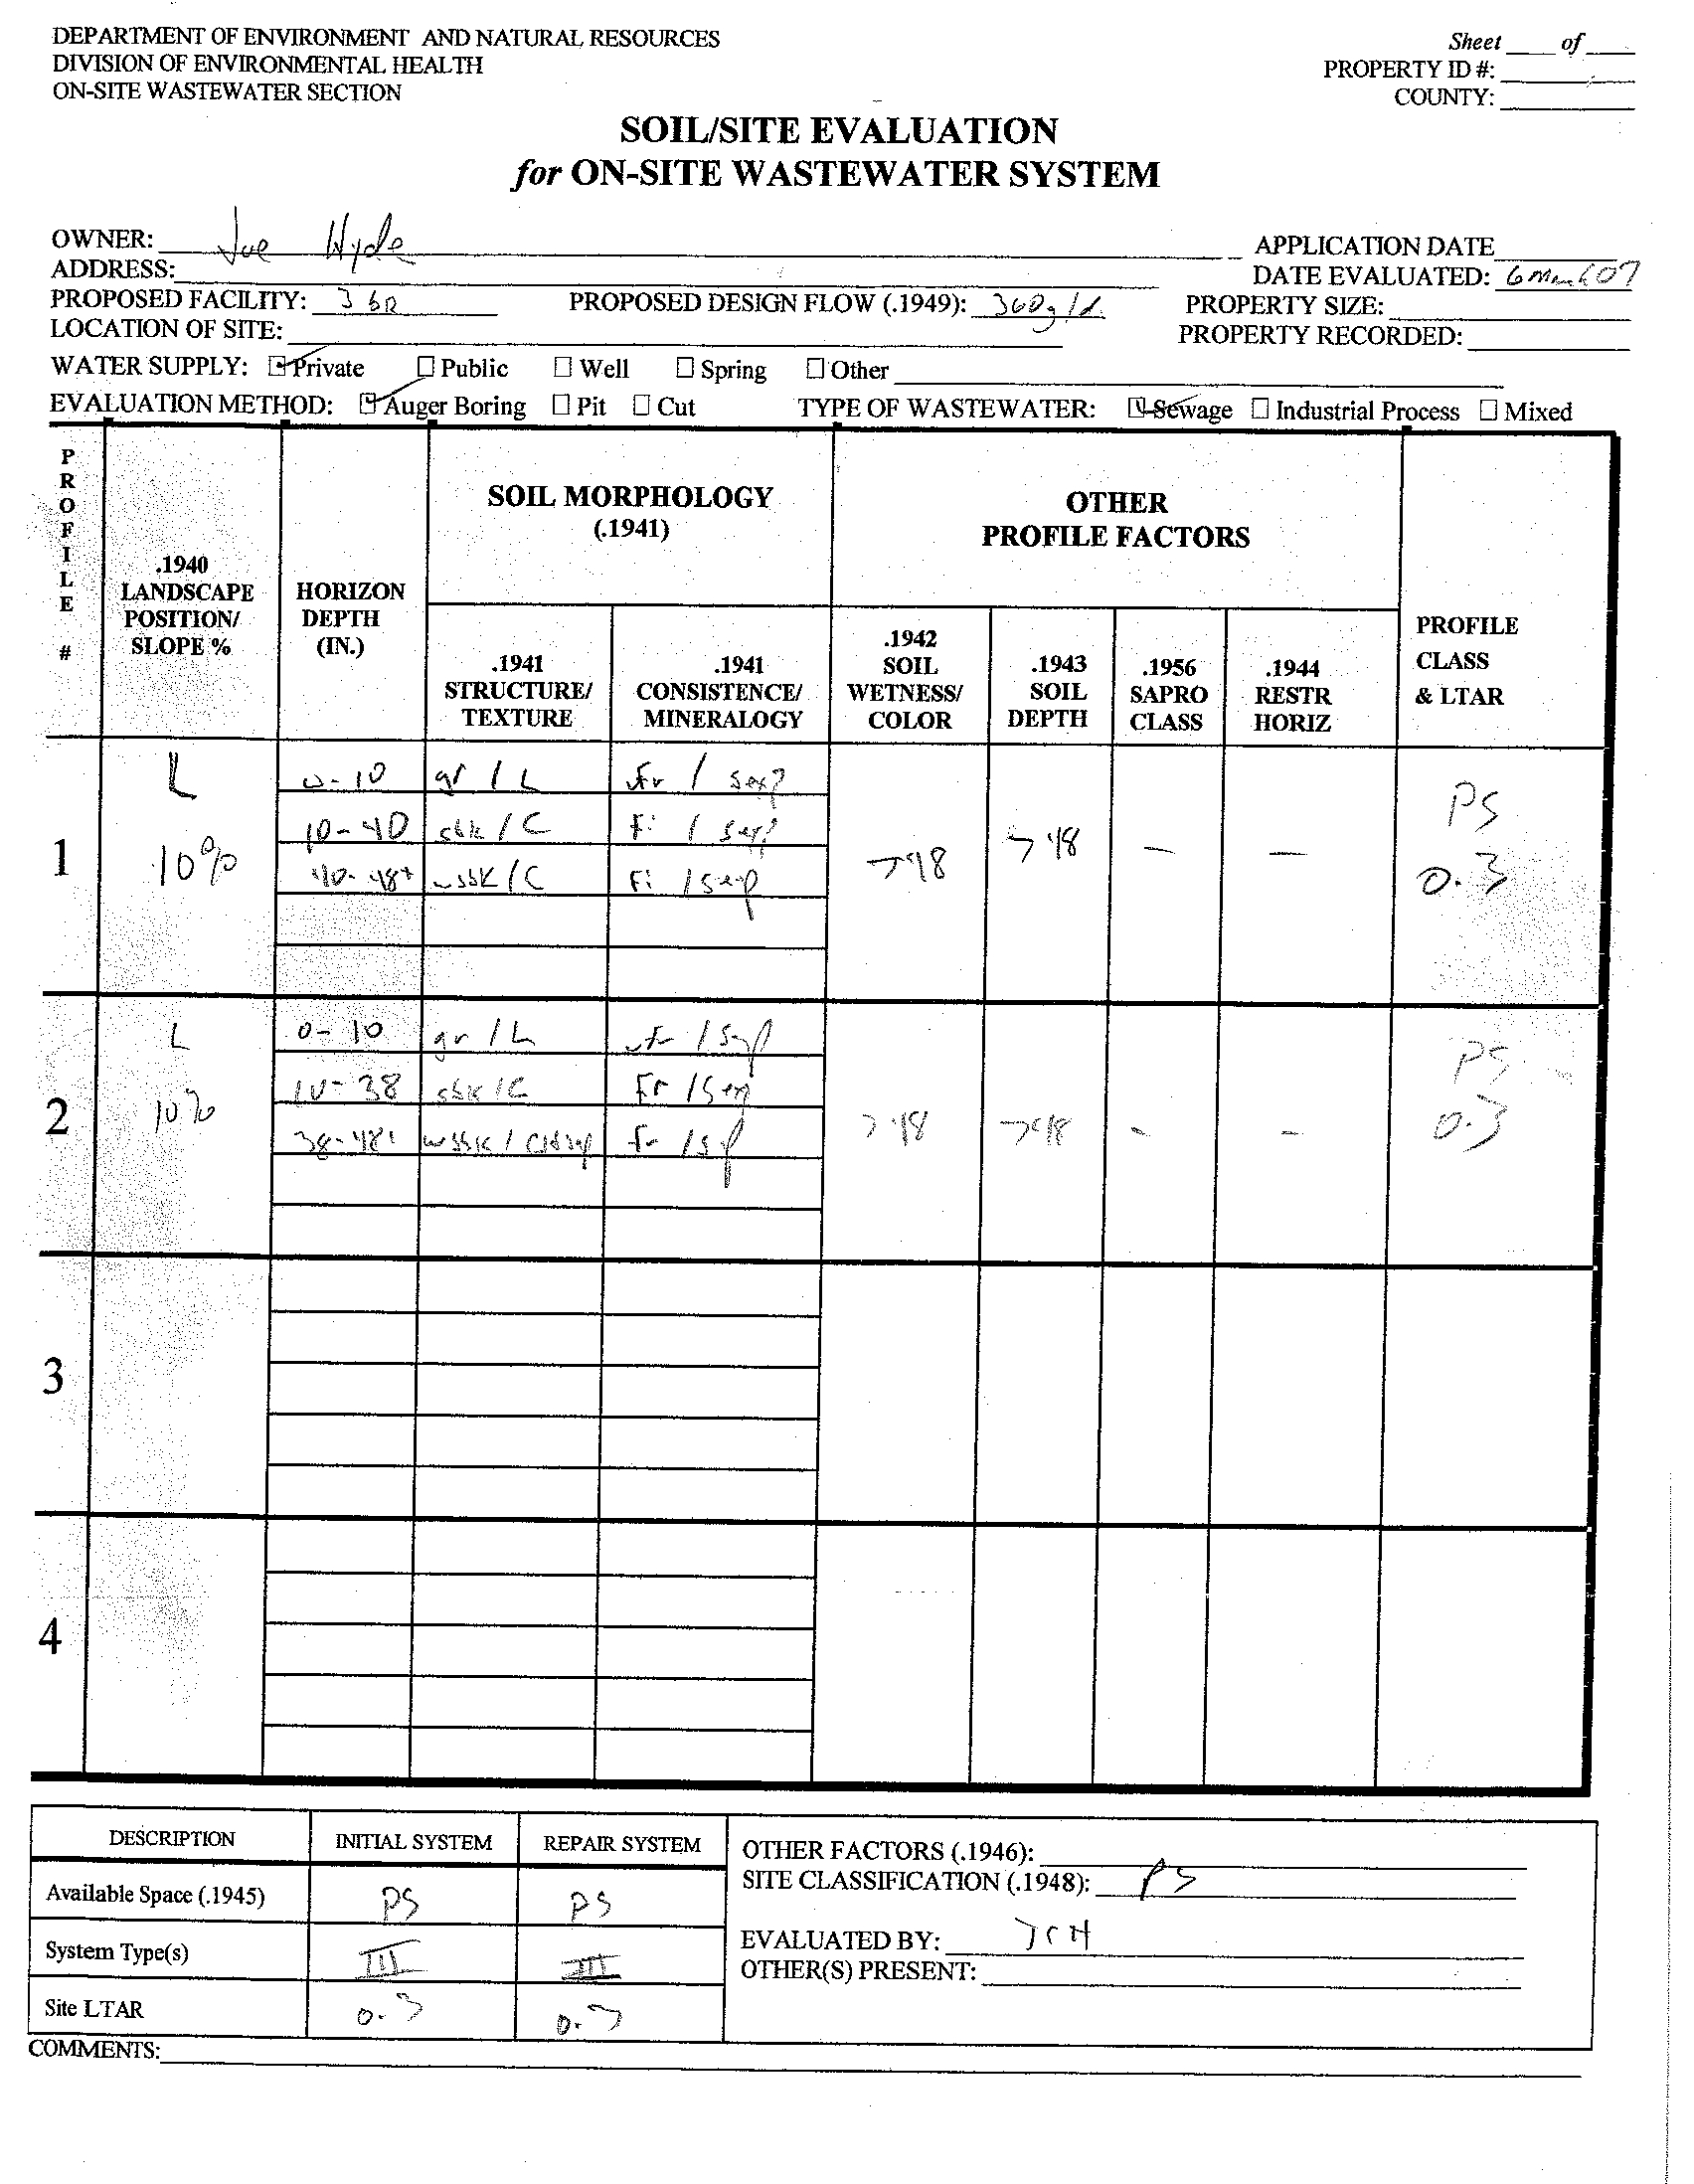 DEPARTMENT OF ENVIRONMENT AND NATURAL RESOURCES
DIVISION OF ENVIRONMENTAL HEALTH
ON-SITE WASTEWATER SECTION
Sheet ____ of ____
PROPERTY ID #:
COUNTY:
SOIL/SITE EVALUATION
for ON-SITE WASTEWATER SYSTEM
OWNER: Joe Hyde
APPLICATION DATE
ADDRESS:
DATE EVALUATED: 6 07
PROPOSED FACILITY: 3 BR PROPOSED DESIGN FLOW (.1949): 360 g/d. PROPERTY SIZE:
LOCATION OF SITE:
PROPERTY RECORDED:
WATER SUPPLY: Private Public Well Spring Other
EVALUATION METHOD: Auger Boring Pit Cut TYPE OF WASTEWATER: Sewage Industrial Process Mixed
PROFILE #
.1940 LANDSCAPE POSITION/ SLOPE %
HORIZON DEPTH (IN.)
SOIL MORPHOLOGY (.1941)
.1941 STRUCTURE/ TEXTURE
.1941 CONSISTENCE/ MINERALOGY
OTHER PROFILE FACTORS
.1942 SOIL WETNESS/ COLOR
.1943 SOIL DEPTH
.1956 SAPRO CLASS
.1944 RESTR HORIZ
PROFILE CLASS & LTAR
1 L 10%
0-10 gr / L vfr /
10-40 sbk / C Fi /
40-48+ wsbk / C Fi / Sexp
>48 >48 - - PS 0.3
2 L 10%
0-10 gr / L vfr / Sexp
10-38 sbk / C Fr / Sexp
38-48+ wsbk / fr /
>48 >48 - - PS 0.3
3
4
DESCRIPTION INITIAL SYSTEM REPAIR SYSTEM
Available Space (.1945) PS PS
System Type(s) III III
Site LTAR 0.3 0.3
OTHER FACTORS (.1946):
SITE CLASSIFICATION (.1948): PS
EVALUATED BY: JCH
OTHER(S) PRESENT:
COMMENTS: